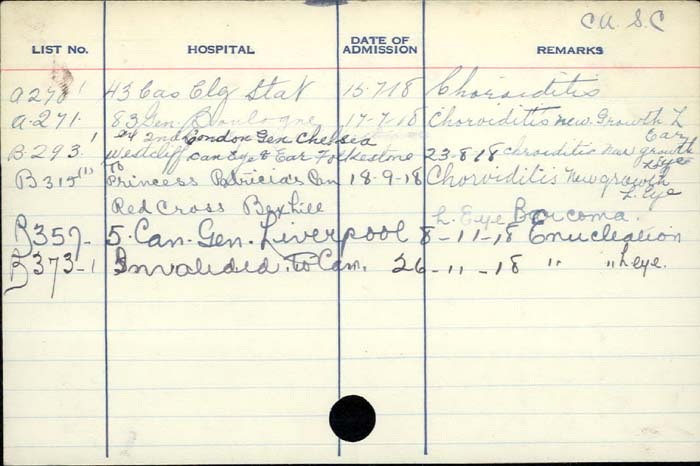 CA. S. C
LIST No. HOSPITAL DATE OF ADMISSION REMARKS
A270' 43 Cas Clg Stat 15-7-18 Choroiditis
A-271. 83 Gen. Boulogne 17-7-18 Choroiditis new. Growth L
Ear
2nd London Gen Chelsea
B-293.' Westcliff Can Eye & Ear Folkestone 23-8-18 Chroiditis new growth
L Eye
B315(1) To Princess Patricia's Can 18-9-18 Chorviditis New growth
L. Eye
Red Cross Bexhill L. Eye
B357- 5. Can. Gen. Liverpool 8-11-18 Enucleation
B373-1 Invalided. To Can. 26-11-18 " " L eye.